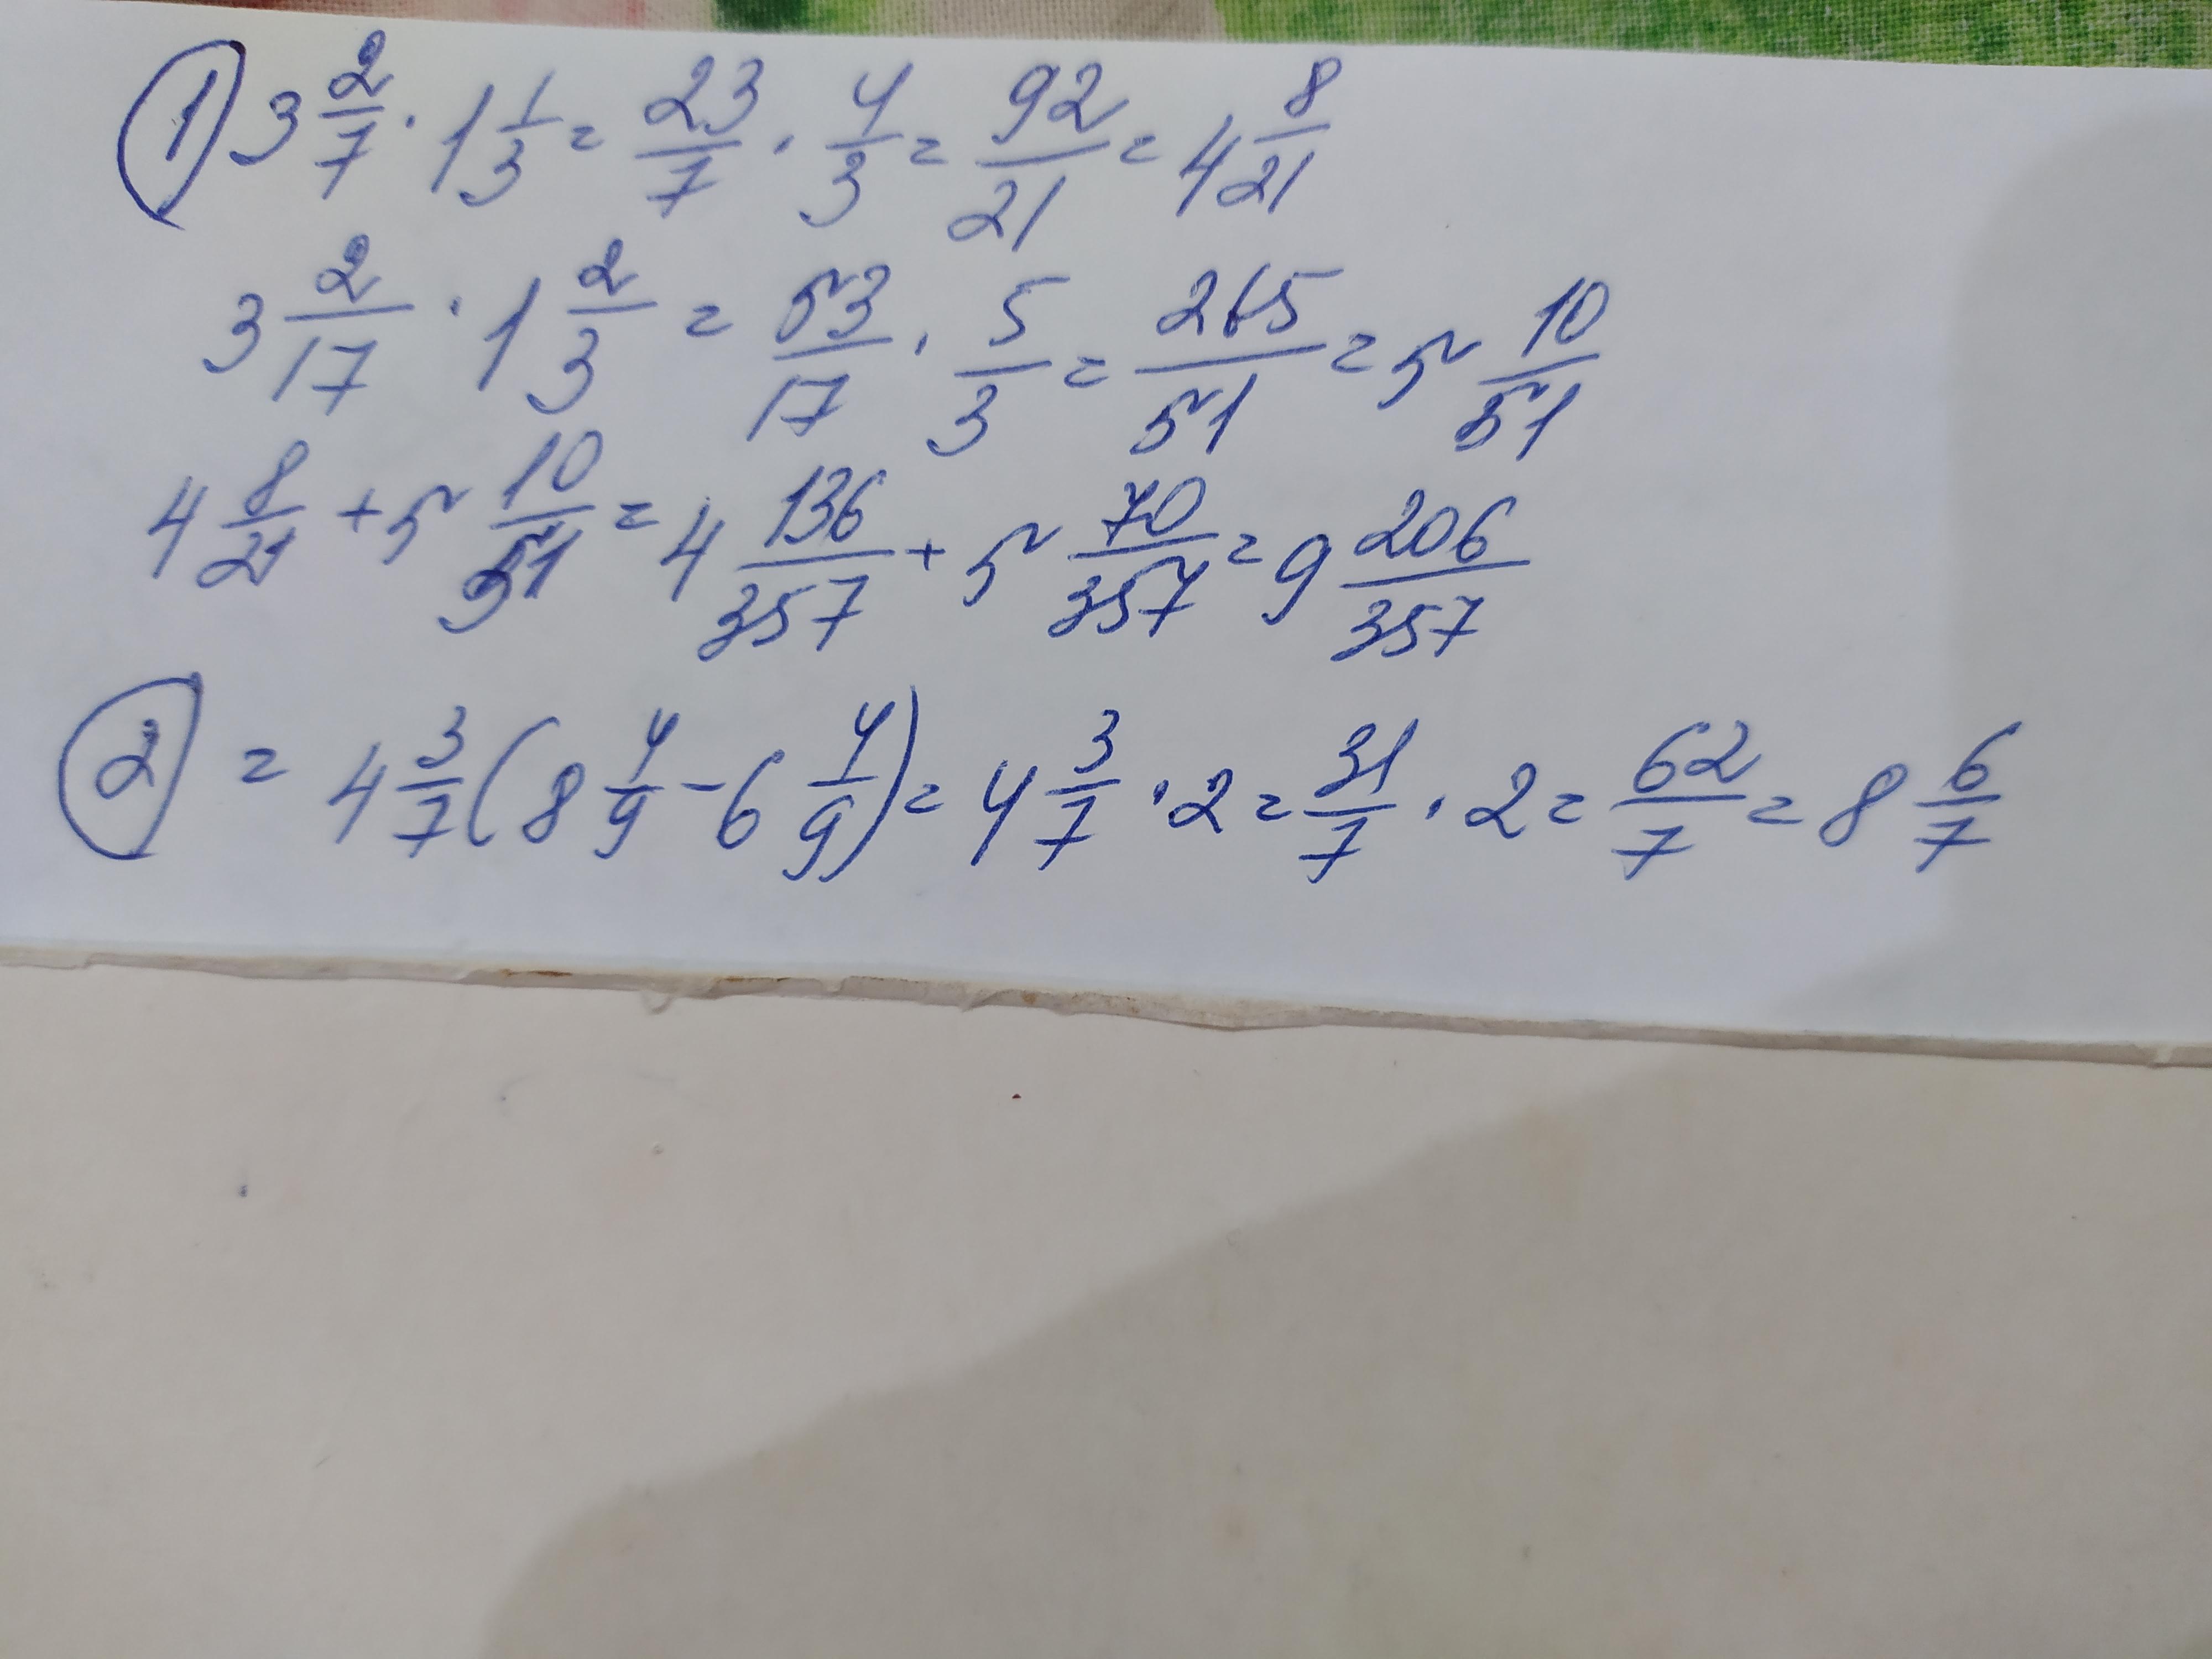 ① 3 2/7 · 1 1/3 = 23/7 · 4/3 = 92/21 = 4 8/21
3 2/17 · 1 2/3 = 53/17 · 5/3 = 265/51 = 5 10/51
4 8/21 + 5 10/51 = 4 136/357 + 5 70/357 = 9 206/357
② = 4 3/7 (8 4/9 - 6 4/9) = 4 3/7 · 2 = 31/7 · 2 = 62/7 = 8 6/7